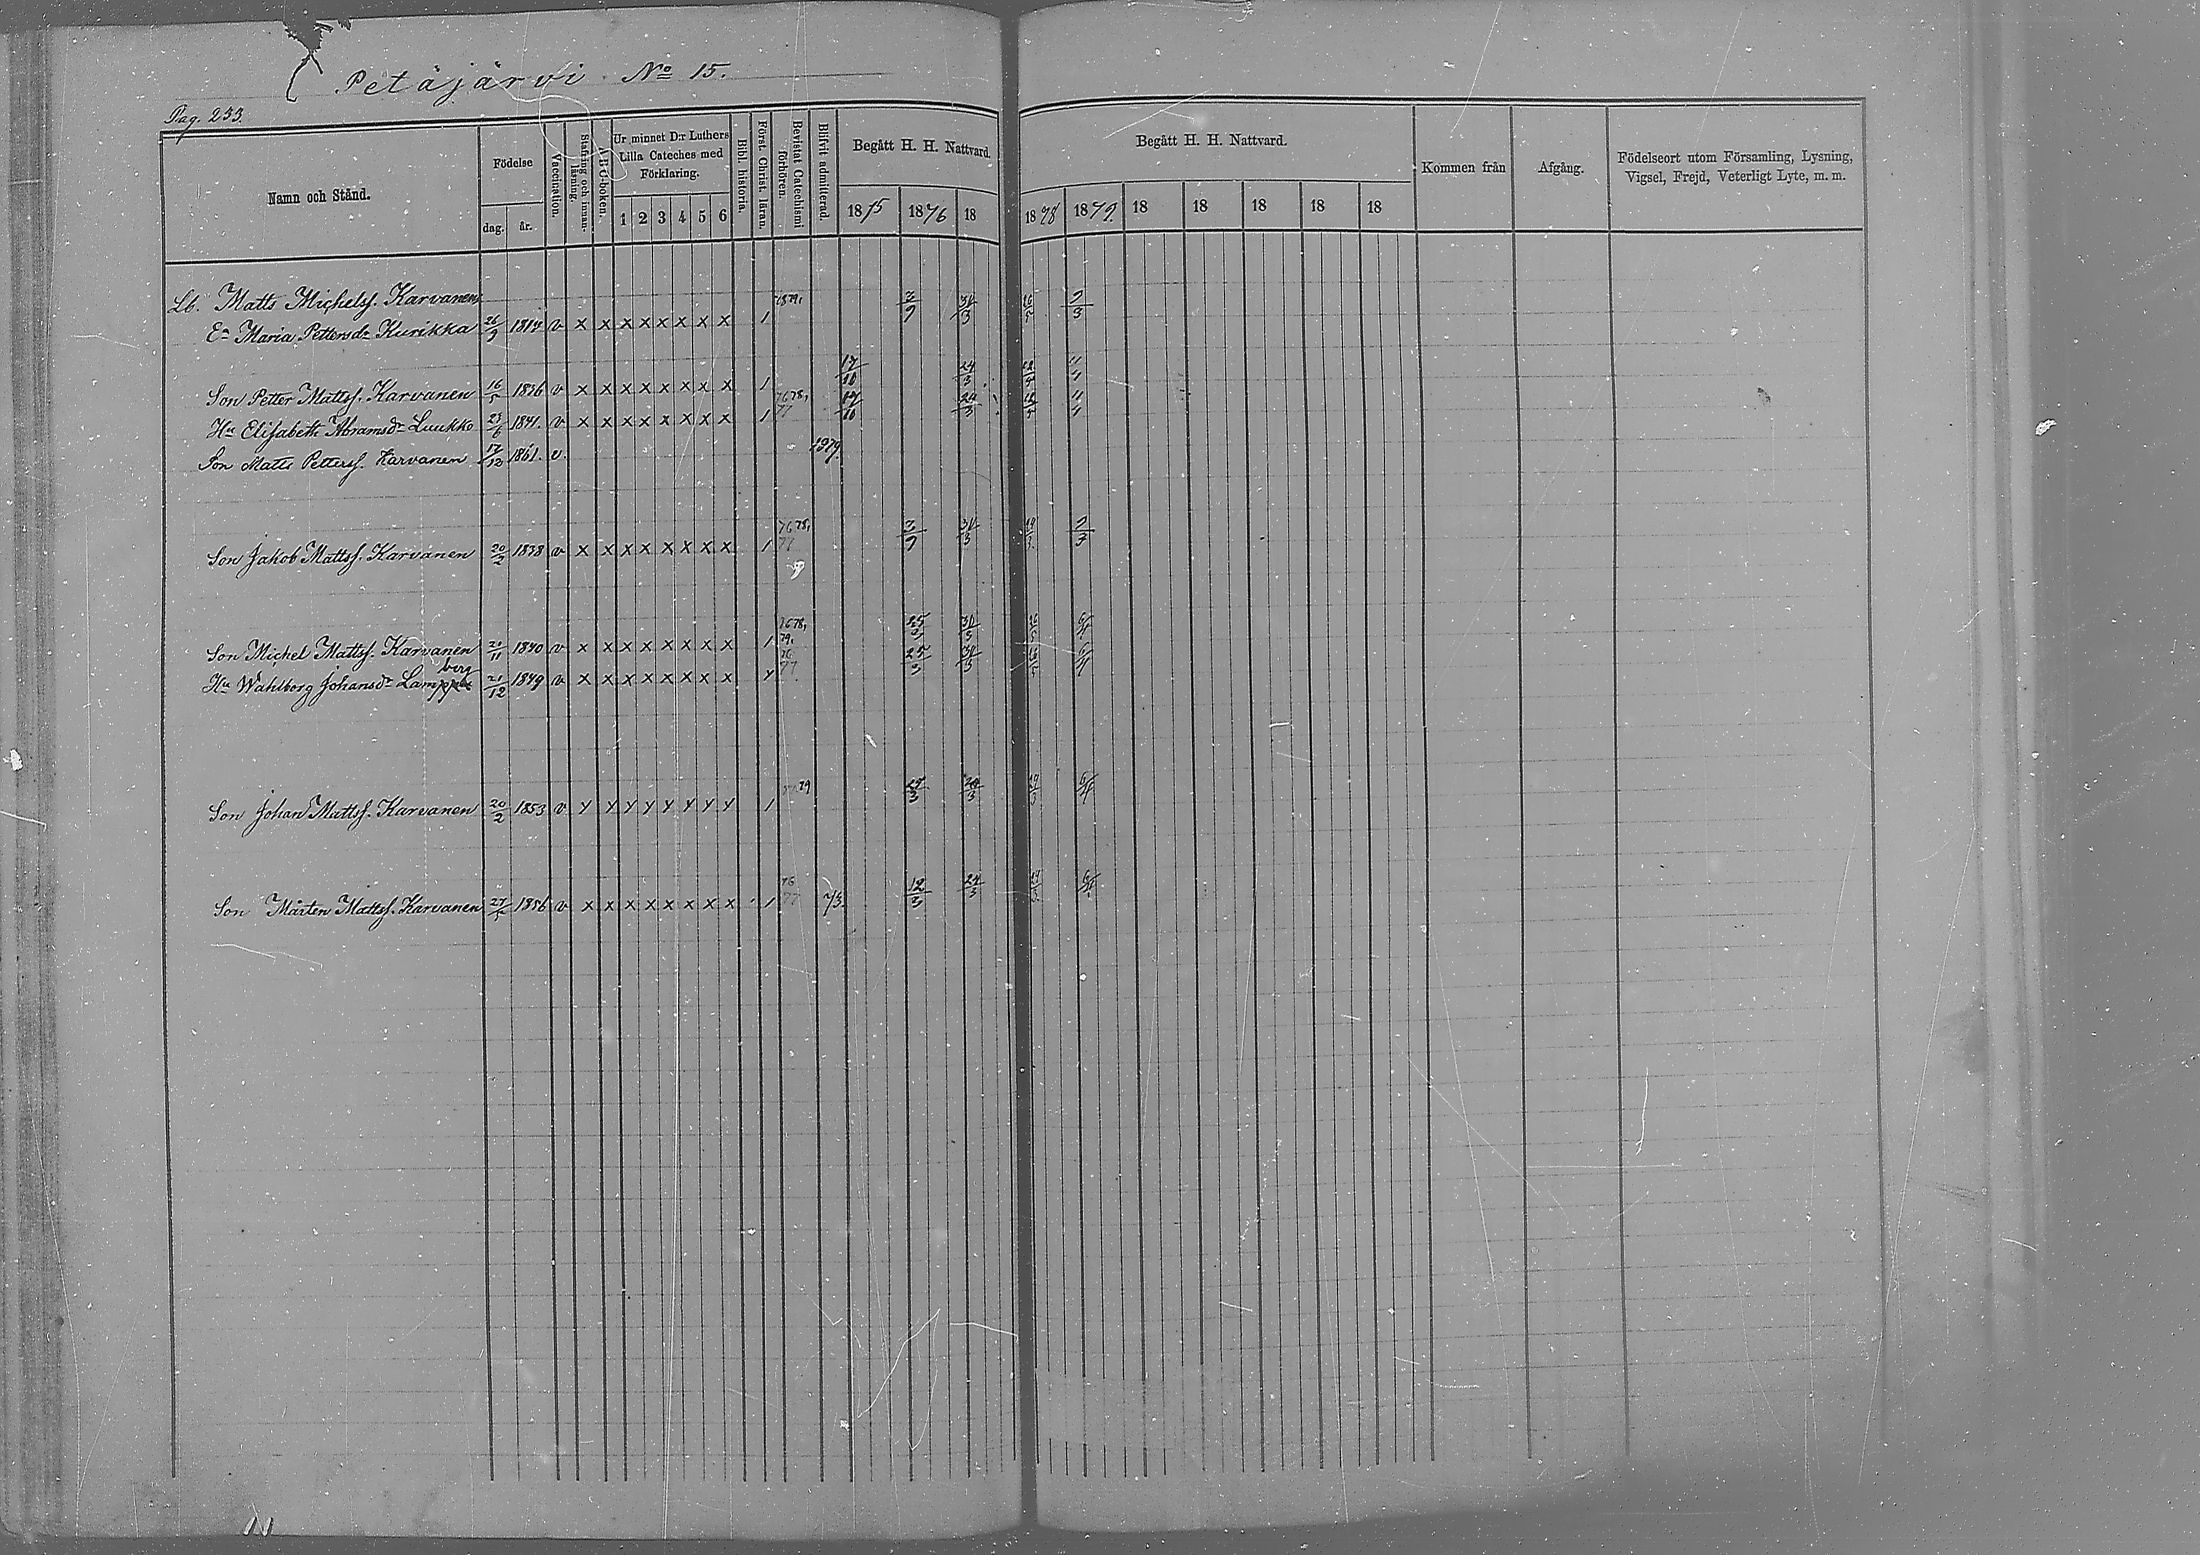 Petäjärvi. No 15.
Pag. 233.
Namn och Stånd.
Födelse
dag. år.
Vaccination.
Stafning och innanläsning.
A-B-C-boken.
Ur minnet D:r Luthers Lilla Cateches med Förklaring.
1 2 3 4 5 6
Bibl. historia.
Först. Christ. läran.
Bevistat Catechismi förhören.
Blifvit admitterad.
Begått H. H. Nattvard.
1875 1876 18
Begått H. H. Nattvard.
1878 1879. 18 18 18 18 18
Kommen från
Afgång.
Födelseort utom Församling, Lysning, Vigsel, Frejd, Veterligt Lyte, m. m.
Lb. Matts Michelss. Karvanen
Ea Maria Pettersdr Kurikka 26/9 1814 v x x x x x x x x 1 1879, 2/9 30/3 26/5 9/3
Son Petter Mattss. Karvanen 16/5 1836 v x x x x x x x x 1 17/10 24/3 4
Hu Elisabeth Abramsdr Luukko 23/6 1841. v x x x x x x x x 1 76 78, 77 17/10 24/3 4
Son Matts Petterss. Karvanen 17/12 1861. v. 1879.
Son Jakob Mattss. Karvanen 20/2 1838 v x x x x x x x x 1 76 78, 77 2/9 30/3 9/3
Son Michel Mattss. Karvanen 21/11 1840 v x x x x x x x x 1 76 78, 79. 25/3 30/3 26/5 6/4
berg
Hu Wahlborg Johansdr Lamp 21/12 1849 v x x x x x x x x 76 77 25/3 30/3 6/4
Son Johan Mattss. Karvanen 20/2 1853 v y y y y y y y y 1 79 25/3 24/3 6/4
Son Mårten Mattss. Karvanen 1856 v x x x x x x x x 1 76 77 73. 12/3 24/3 6/4